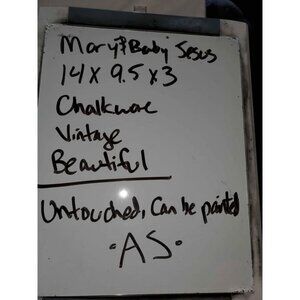 Mary & Baby Jesus
14 x 9.5 x 3
Chalkware
Vintage
Beautiful
Untouched, Can be painted
·AS·